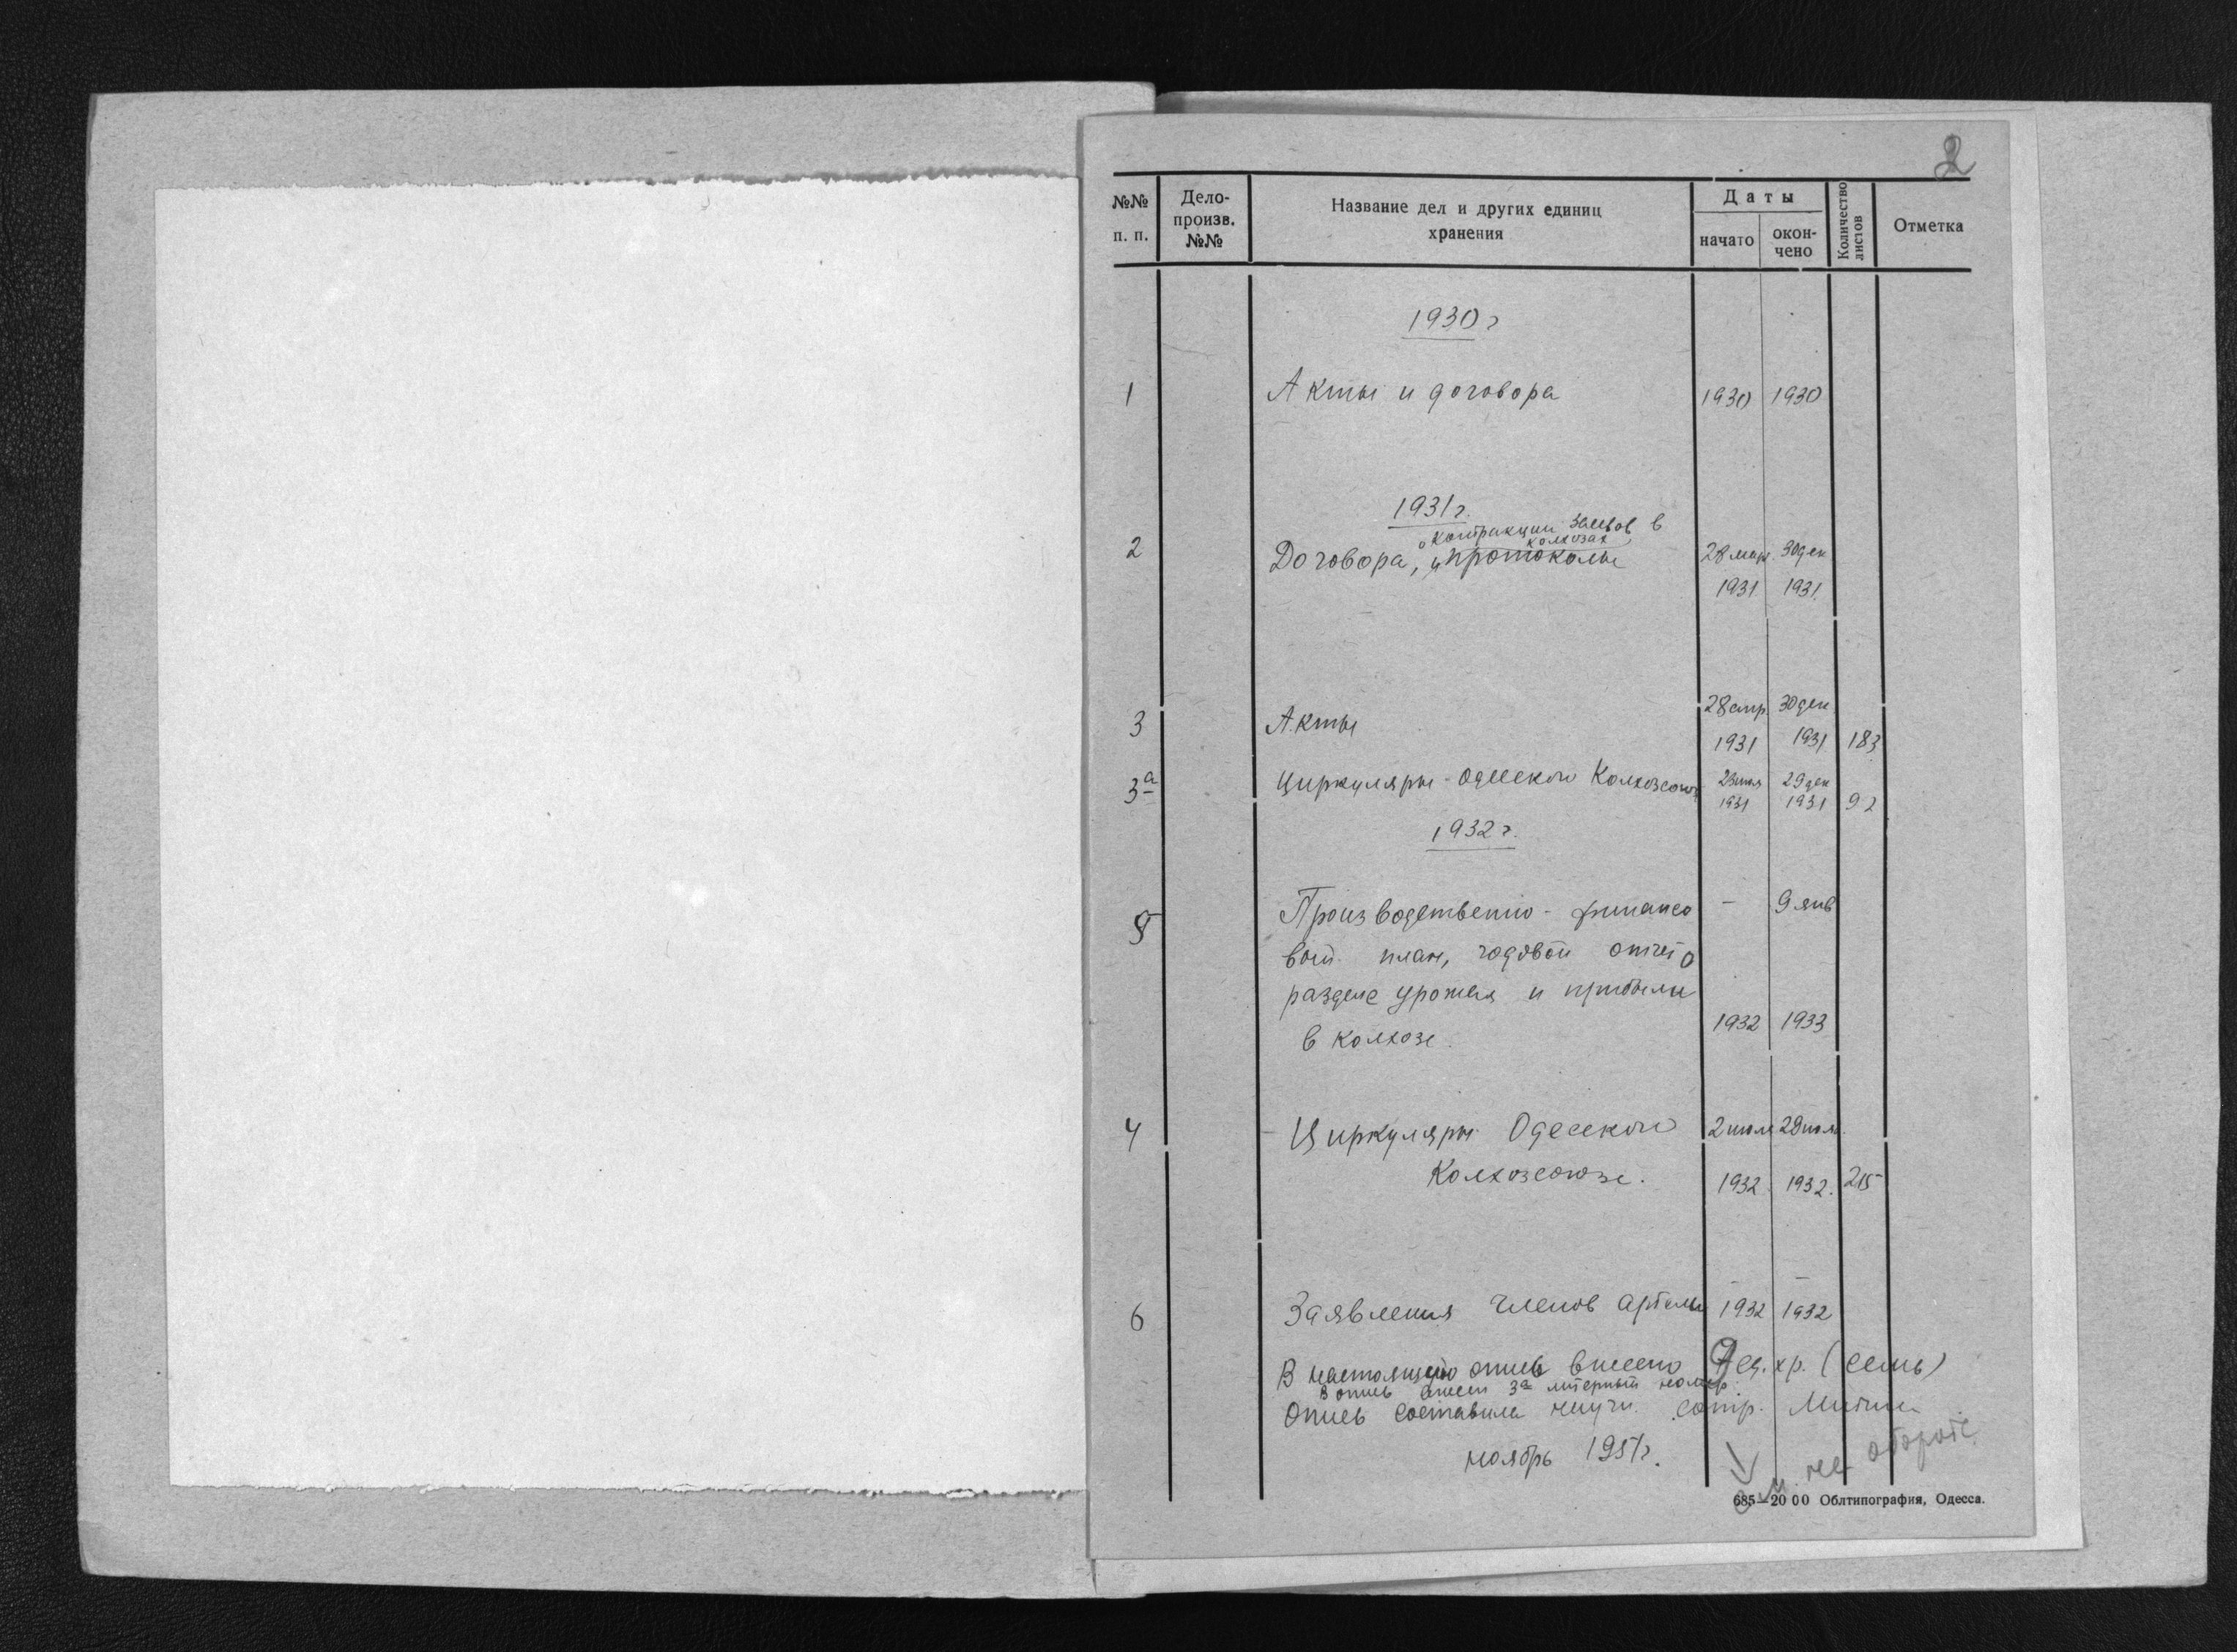 2
№№ п. п.
Дело-
произв.
№№
Название дел и других единиц
хранения
Даты
начато
окон-
чено
Количество
листов
Отметка
1930 г
1 Акты и договора 1930 1930
1931 г.
о контракции в
колхозах
2 Договора, и протоколы 28 мар. 30 дек
1931 1931
28 апр. 30 дек
3 Акты 1931 1931 183
3а Циркуляры Одесского 29 дек
1931 1931 92
1932 г.
5 Производственно-финансо - 9 янв
вый план, годовой отчет о
разделе урожая и прибыли
в колхозе. 1932 1933
4 Циркуляры Одесского
Колхозсоюза. 1932 1932. 215
6 Заявления членов артели 1932 1932
В настоящую опись внесено 7 ед. хр. (семь)
В опись 3а литерный номер.
Опись составила сотр.
ноябрь 1951 г.
см. на обороте
685—2000 Облтипография, Одесса.